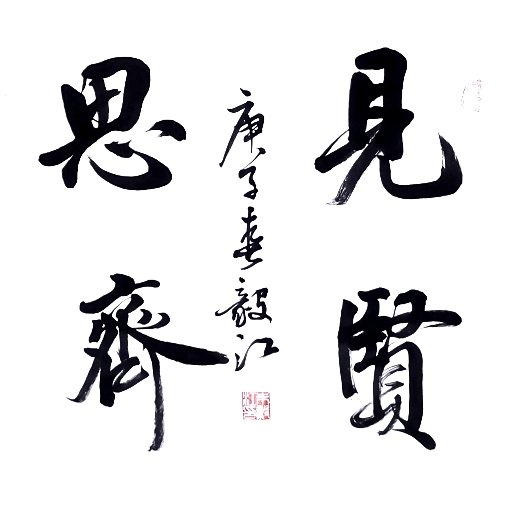 見賢
思齊
庚子春毅江